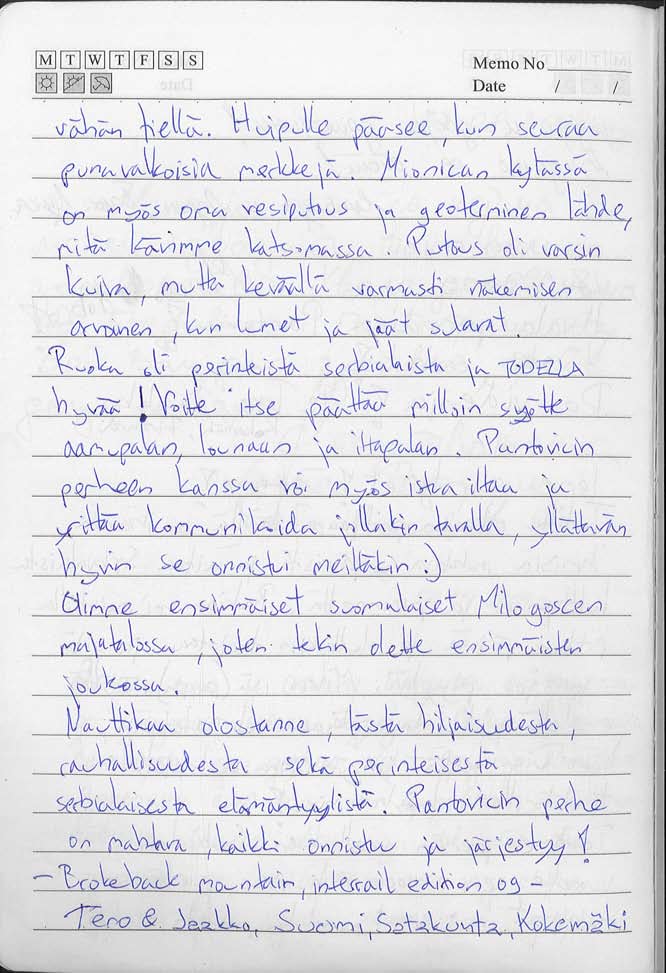 M T W T F S S
Memo No
Date / /
vähän tiellä. Huipulle pääsee, kun seuraa
punavalkoisia merkkejä. Mionican kylässä
on myös oma vesiputous ja geoterminen lähde,
mitä kävimme katsomassa. Putous oli varsin
kuiva, mutta keväällä varmasti näkemisen
arvoinen, kun lumet ja jäät sulavat.
Ruoka oli perinteistä serbialaista ja TODELLA
hyvää! Voitte itse päättää milloin syötte
aamupalan, lounaan ja iltapalan. Pantovicin
perheen kanssa voi myös istua iltaa ja
yrittää kommunikoida jollakin tavalla, yllättävän
hyvin se onnistui meiltäkin :)
Olimme ensimmäiset suomalaiset Milogoscen
majatalossa, joten tekin olette ensimmäisten
joukossa.
Nauttikaa olostanne, tästä hiljaisuudesta,
rauhallisuudesta sekä perinteisestä
serbialaisesta elämäntyylistä. Pantovicin perhe
on mahtava, kaikki onnistuu ja järjestyy!
- Brokeback mountain, interrail edition 09 -
Tero & Jaakko, Suomi, Satakunta, Kokemäki